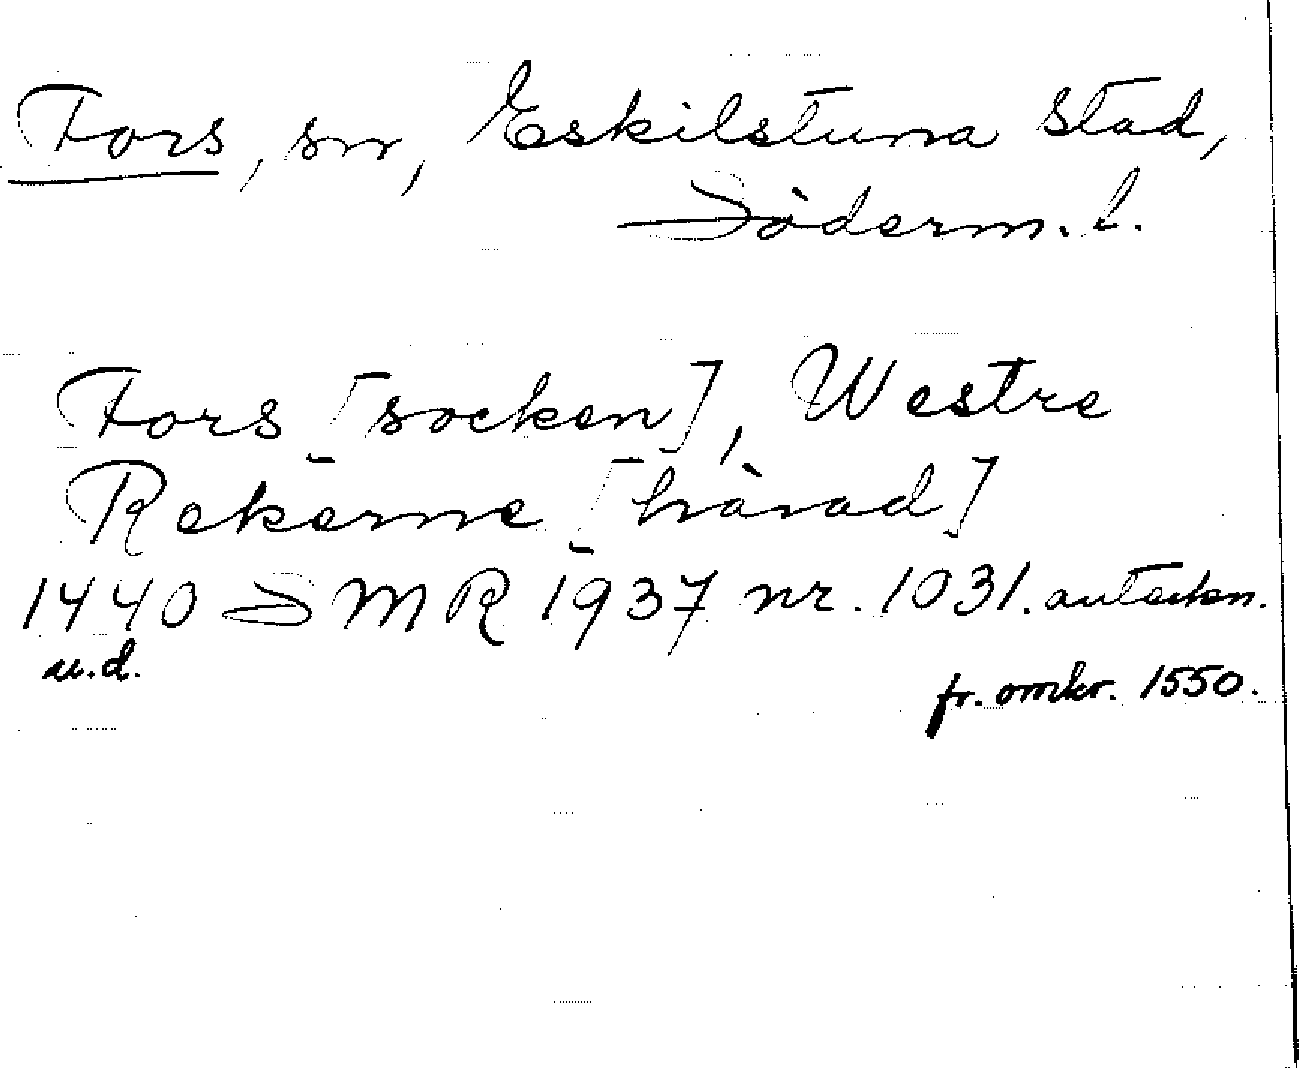 Fors, sn, Eskilstuna stad,
Söderm. l.
Fors [socken], Westre
Rekarne [härad]
1440 SMR 1937 nr. 1031. anteckn.
u.d.
fr. omkr. 1550.